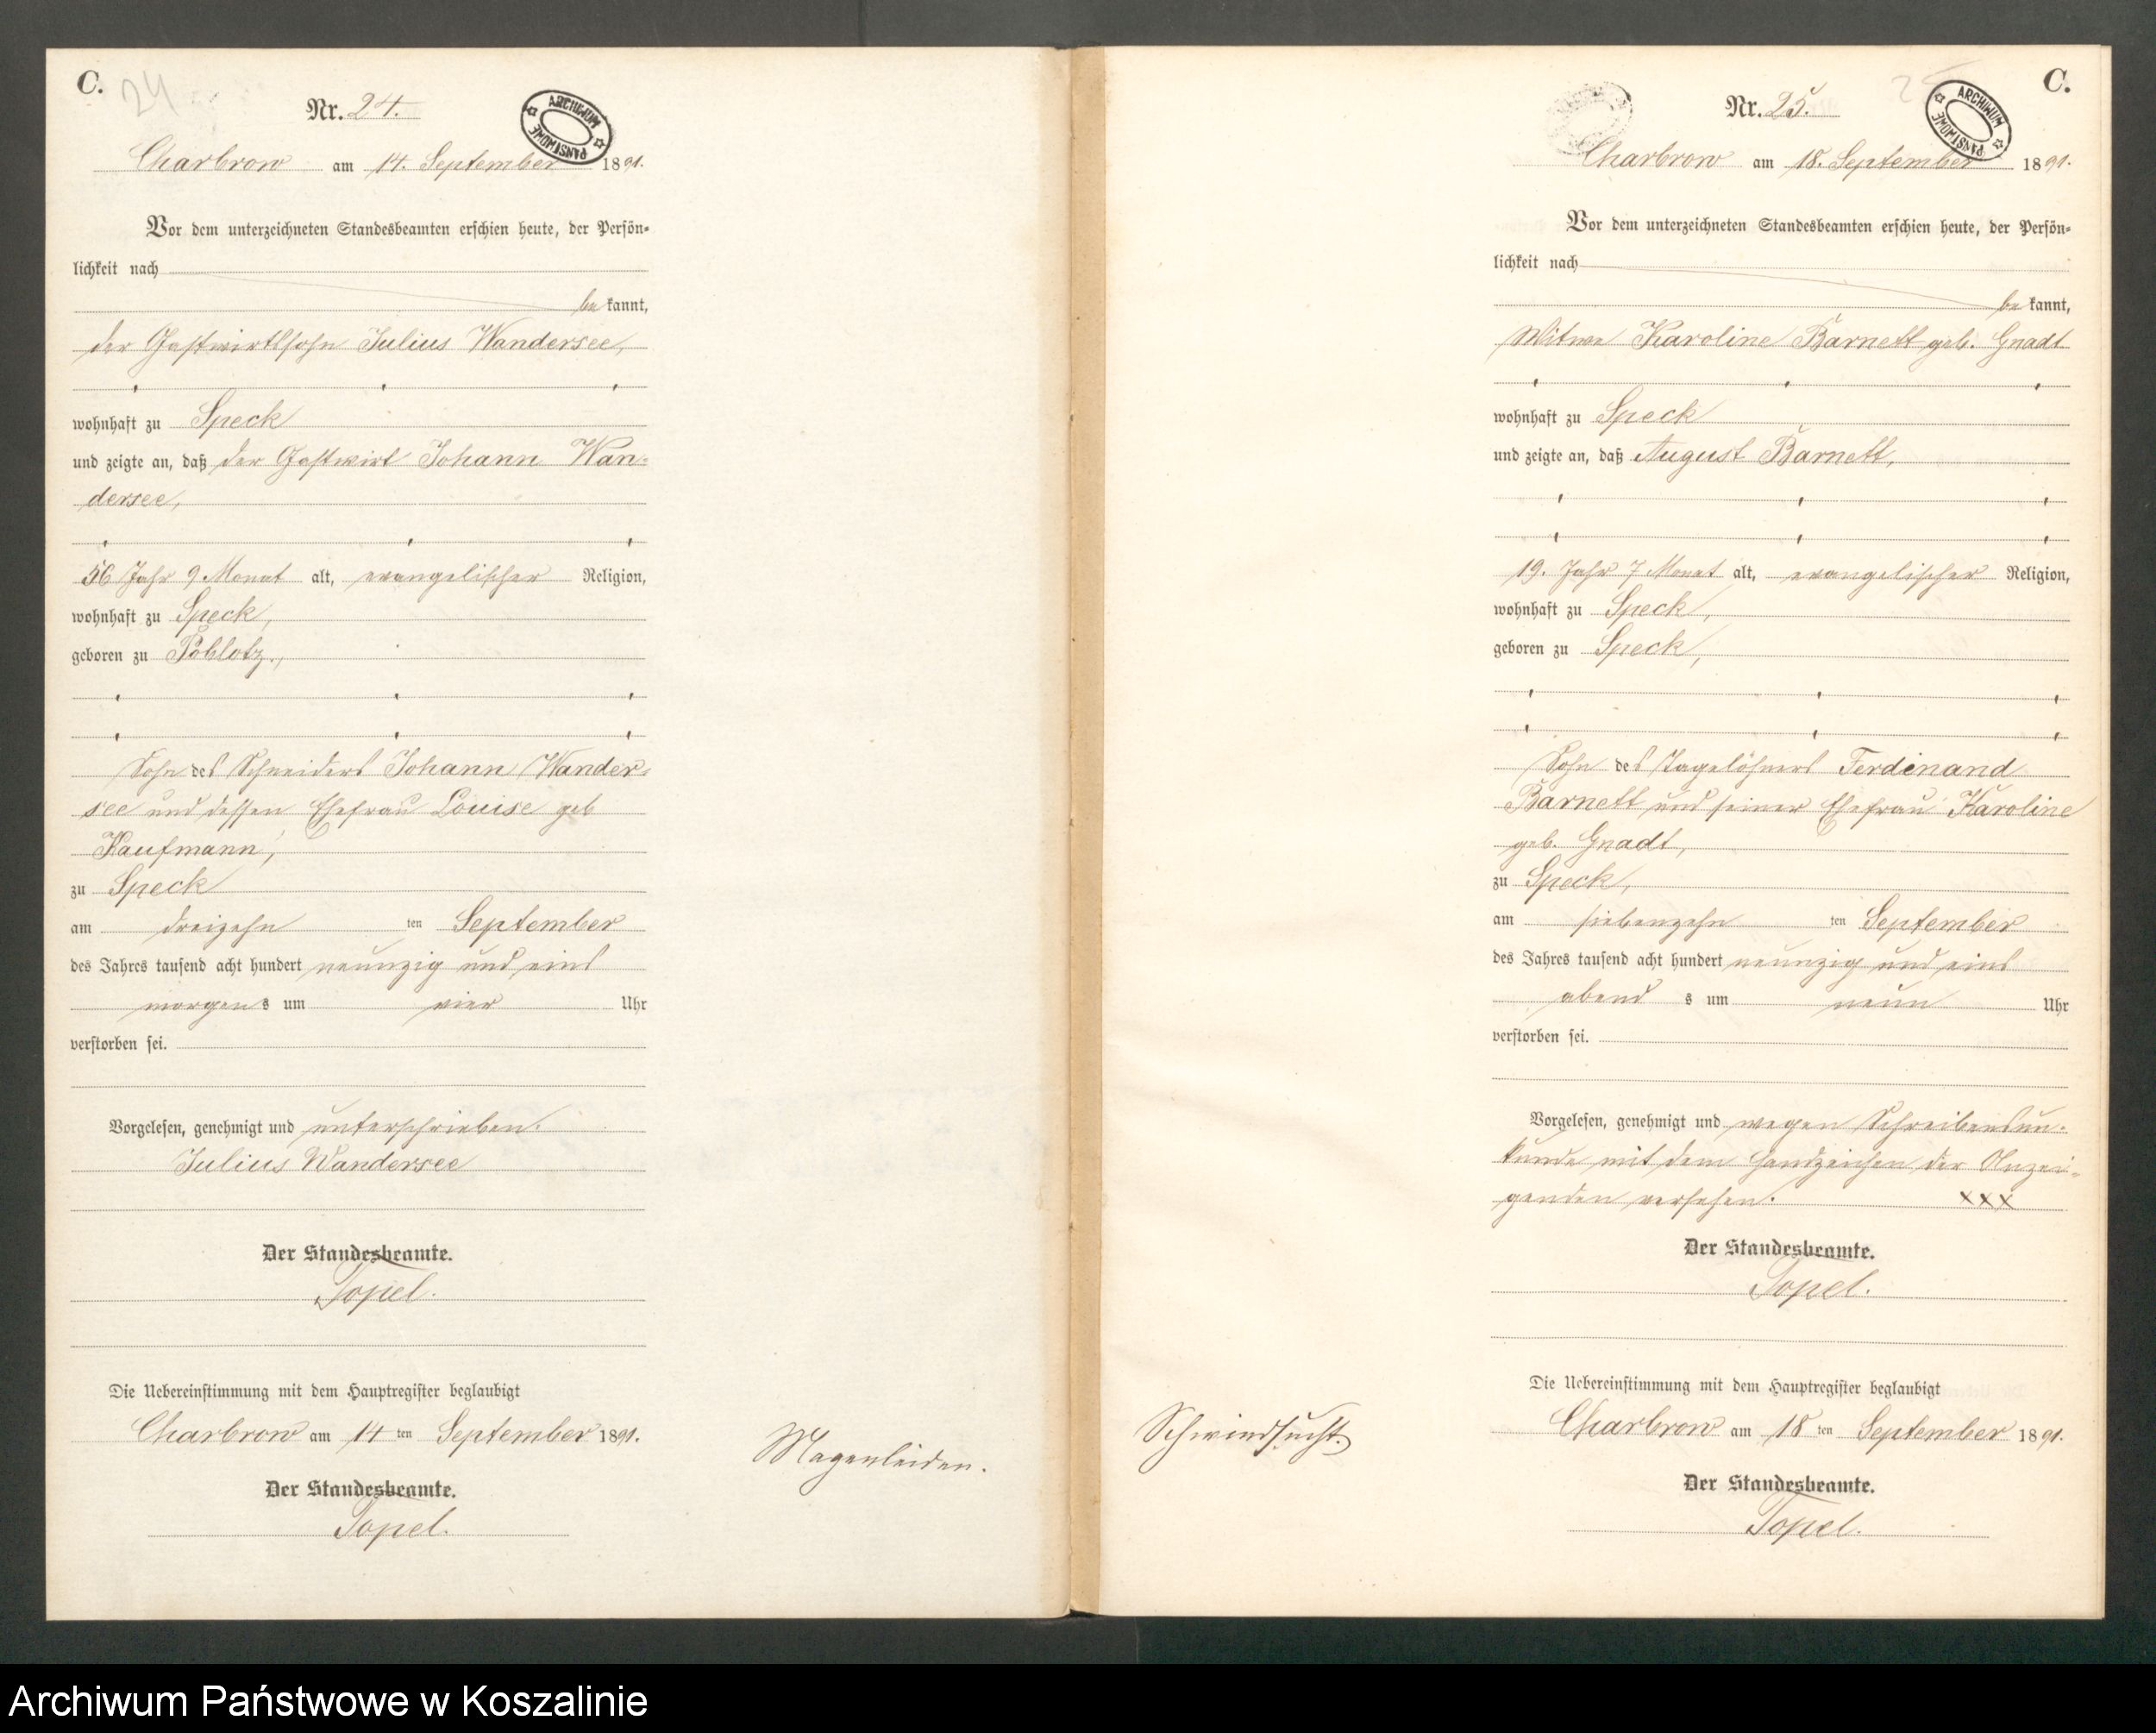 C.
24
Nr. 24.
ARCHIWUM PAŃSTWOWE
Charbrow am 14. September 1891.
Vor dem unterzeichneten Standesbeamten erschien heute, der Persön-
lichkeit nach
be kannt,
der Gastwirtssohn Julius Wandersee,
wohnhaft zu Speck
und zeigte an, daß der Gastwirt Johann Wan-
dersee,
56 Jahr 9 Monat alt, evangelischer Religion,
wohnhaft zu Speck,
geboren zu Poblotz,
Sohn des Schneiders Johann Wander-
see und dessen Ehefrau Louise geb
Kaufmann,
zu Speck
am dreizehn ten September
des Jahres tausend acht hundert neunzig und eins
morgen s um vier Uhr
verstorben sei.
Vorgelesen, genehmigt und unterschrieben.
Julius Wandersee
Der Standesbeamte.
Topel.
Die Uebereinstimmung mit dem Hauptregister beglaubigt
Charbrow am 14 ten September 1891.
Der Standesbeamte.
Topel.
Magenleiden.
C.
25
Nr. 25.
ARCHIWUM PAŃSTWOWE
Charbrow am 18. September 1891.
Vor dem unterzeichneten Standesbeamten erschien heute, der Persön-
lichkeit nach
be kannt,
Witwe Karoline Barnett geb. Gnadt
wohnhaft zu Speck
und zeigte an, daß August Barnett,
19. Jahr 7 Monat alt, evangelischer Religion,
wohnhaft zu Speck,
geboren zu Speck,
Sohn des Tagelöhners Ferdinand
Barnett und seiner Ehefrau Karoline
geb. Gnadt,
zu Speck,
am siebenzehn ten September
des Jahres tausend acht hundert neunzig und eins
abend s um neun Uhr
verstorben sei.
Vorgelesen, genehmigt und wegen Schreibensun-
kunde mit dem Handzeichen der Anzei-
genden versehen. xxx
Der Standesbeamte.
Topel.
Die Uebereinstimmung mit dem Hauptregister beglaubigt
Charbrow am 18 ten September 1891.
Der Standesbeamte.
Topel.
Schwindsucht.
Archiwum Państwowe w Koszalinie